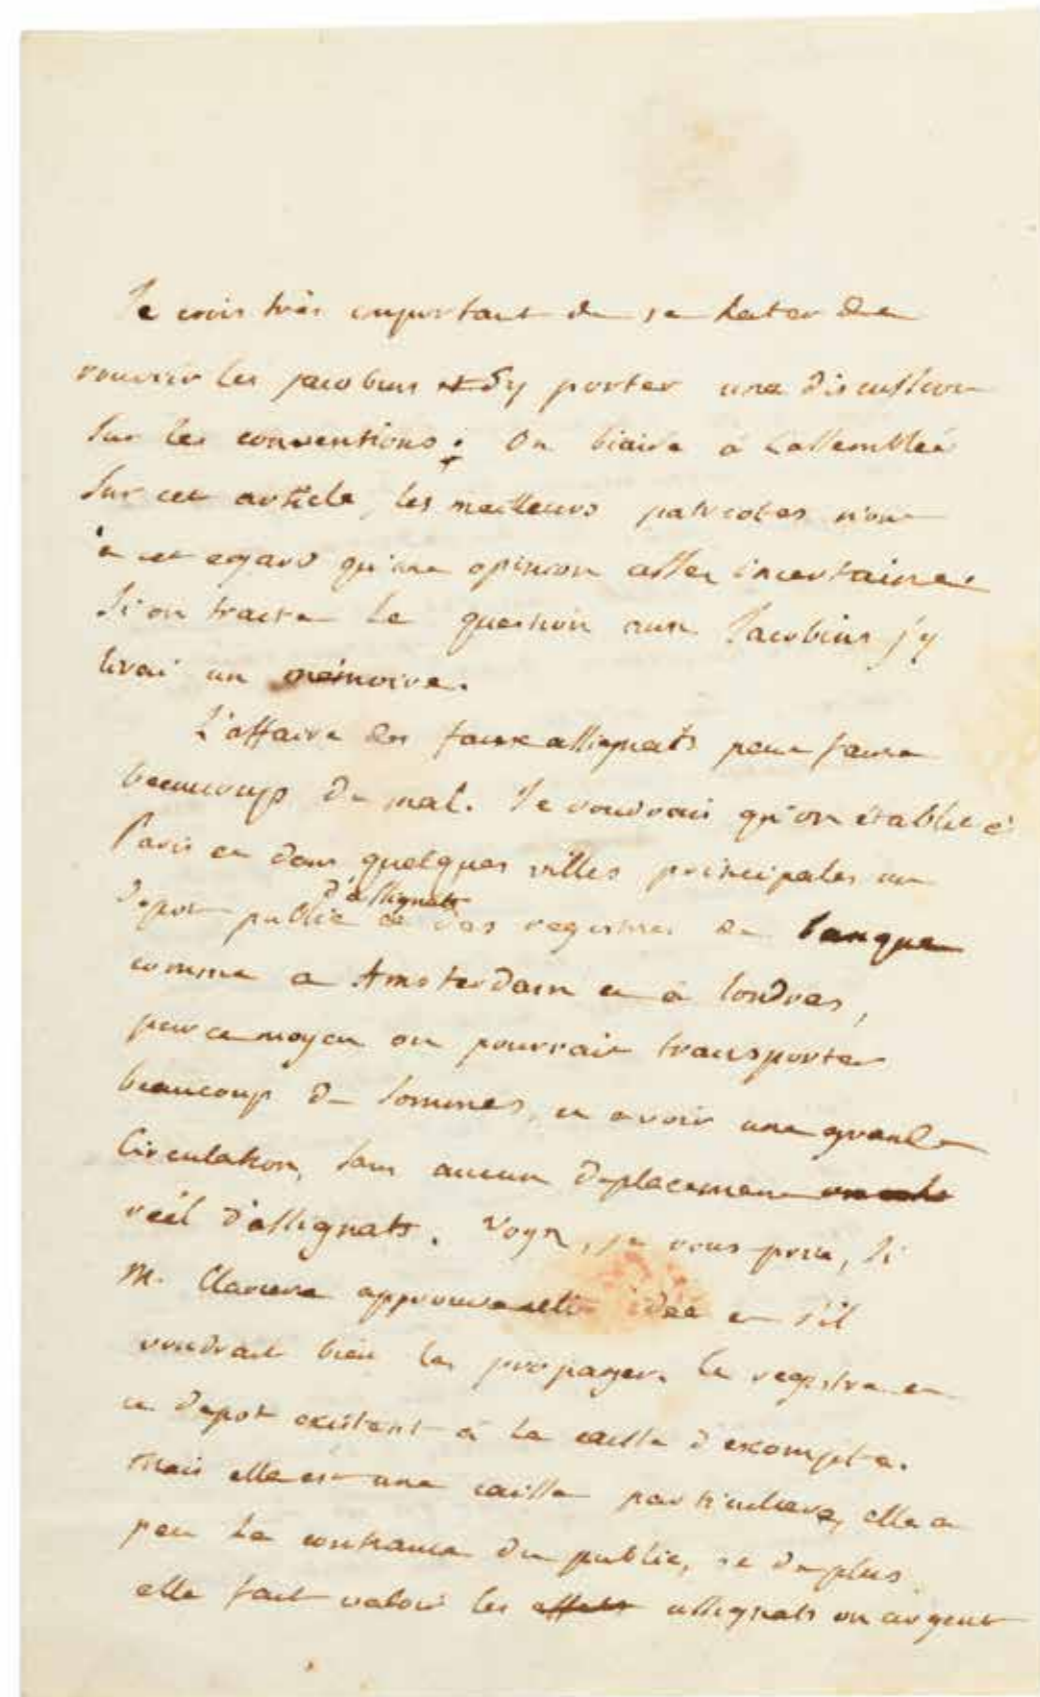 Je crois très important de se hater de
rouvrir les jacobins et d'y porter une discussion
sur les conventions. On biaise à l'assemblée
sur cet article, les meilleurs patriotes n'ont
à cet egard qu'une opinion assez incertaine.
Si on traite la question aux Jacobins j'y
lirai un mémoire.
L'affaire des faux assignats peut faire
beaucoup de mal. Je voudrais qu'on établit à
Paris et dans quelques villes principales un
depot public d'assignats et des registres de banque
comme a Amsterdam et à londres,
par ce moyen on pourrait transporter
beaucoup de sommes, et avoir une grande
Circulation, sans aucun deplacement
réel d'assignats. Voyez, je vous prie, si
M. Claviere approuve cette idée et s'il
voudrait bien la propager. le registre et
ce depot existent à la caisse d'escompte.
mais elle est une caisse particuliere, elle a
peu la confiance du public, et de plus
elle fait valoir les effets assignats ou argent